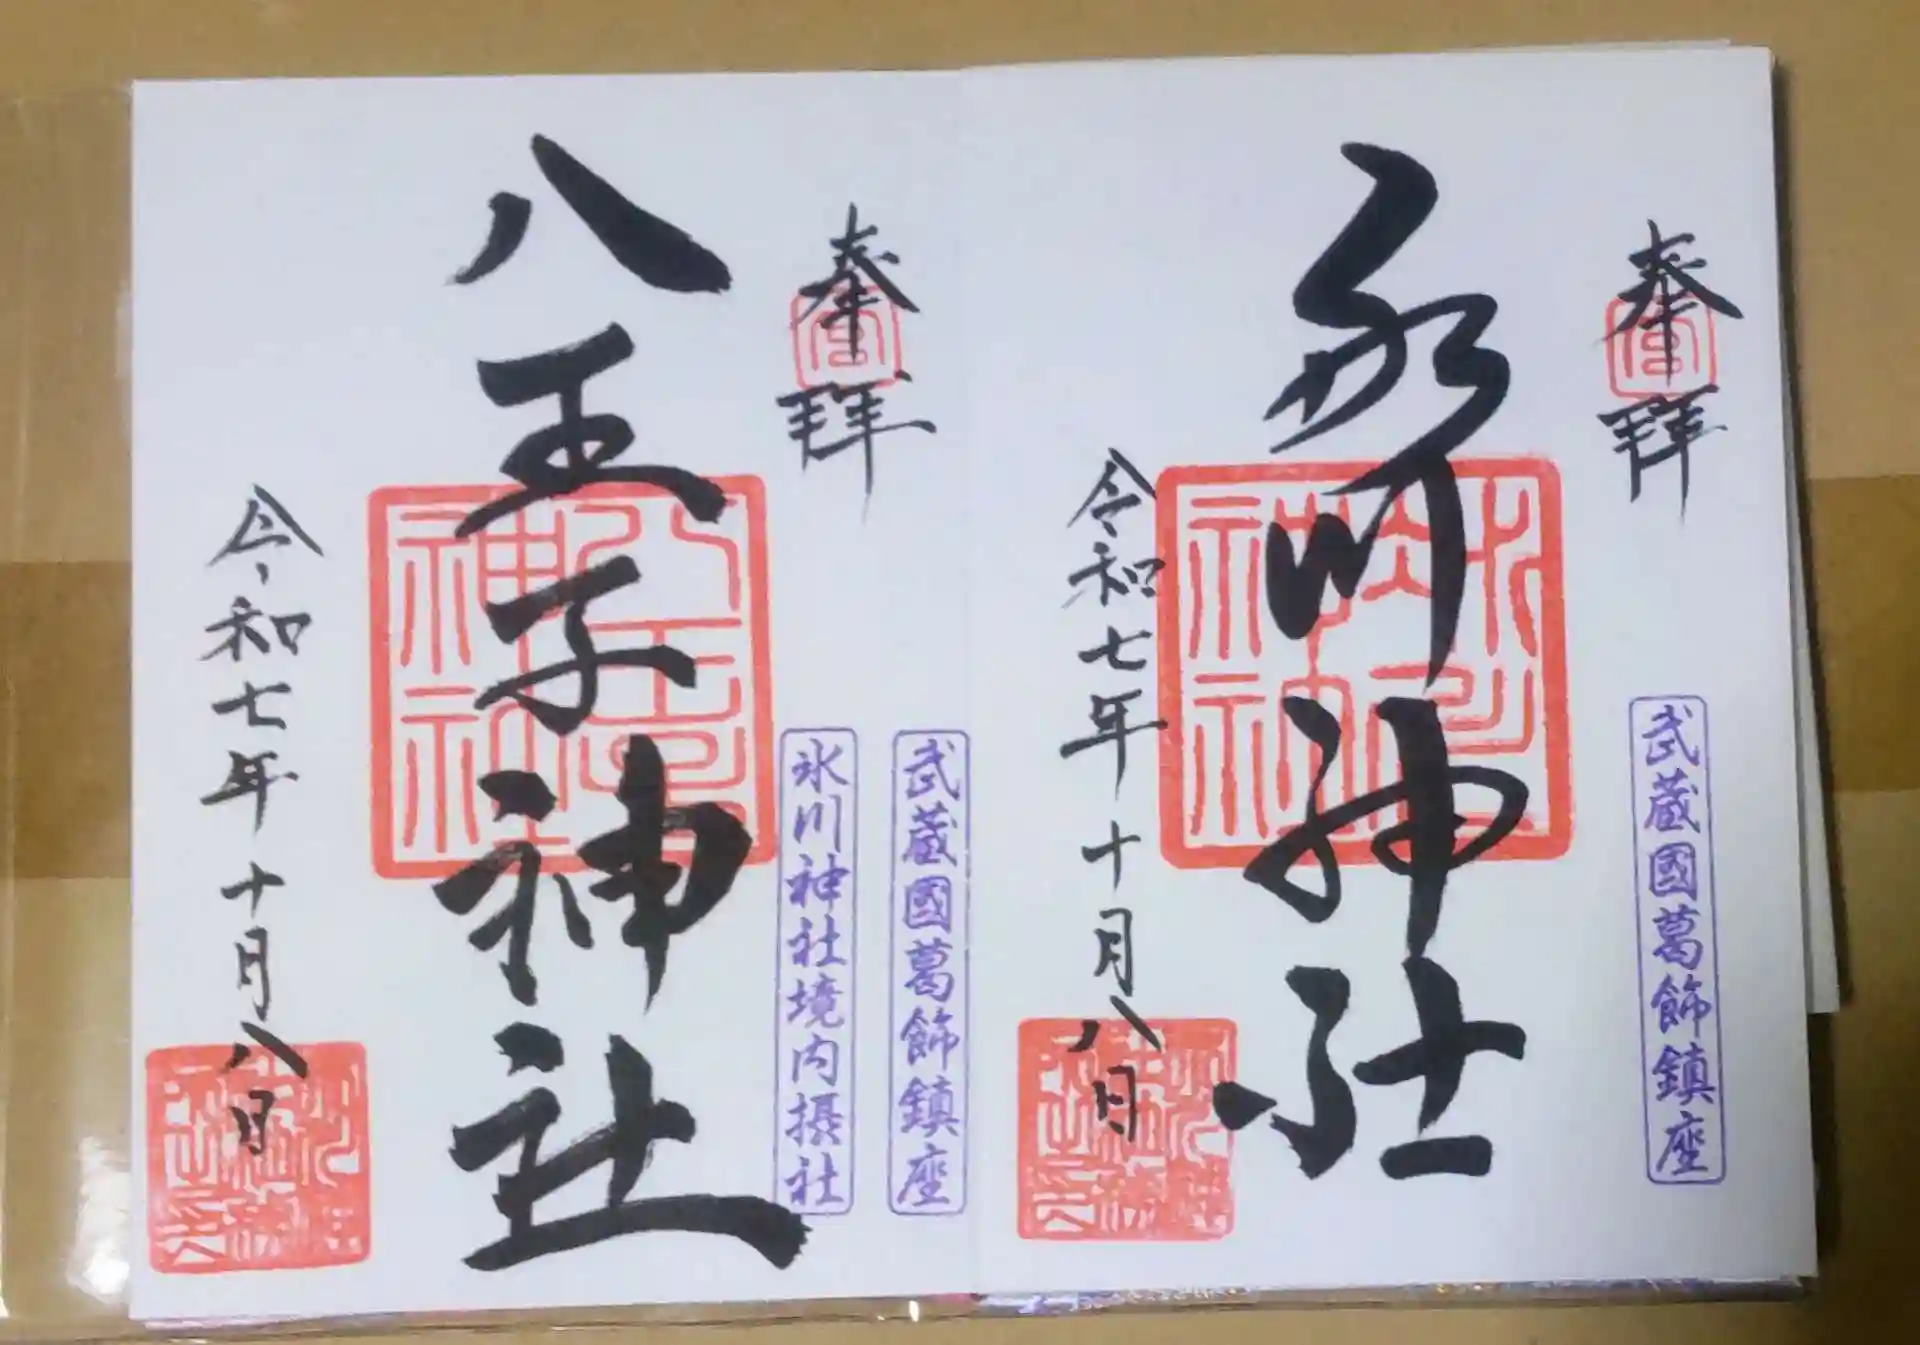 奉拝
武蔵國葛飾鎮座
氷川神社
令和七年十月八日
奉拝
武蔵國葛飾鎮座
氷川神社境内摂社
八王子神社
令和七年十月八日